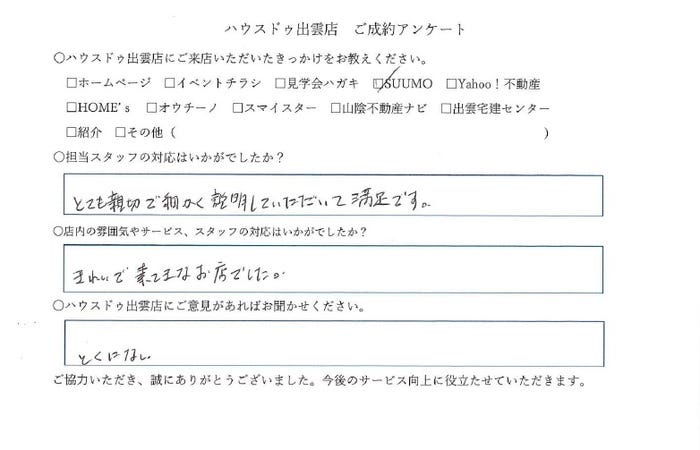 ハウスドゥ出雲店　ご成約アンケート
○ハウスドゥ出雲店にご来店いただいたきっかけをお教えください。
□ホームページ　□イベントチラシ　□見学会ハガキ　☑SUUMO　□Yahoo！不動産
□HOME's　□オウチーノ　□スマイスター　□山陰不動産ナビ　□出雲宅建センター
□紹介　□その他（　　　　　　　　　　　　　　　　　　　　　　　　）
○担当スタッフの対応はいかがでしたか？
とても親切で細かく説明していただいて満足です。
○店内の雰囲気やサービス、スタッフの対応はいかがでしたか？
きれいで素てきなお店でした。
○ハウスドゥ出雲店にご意見があればお聞かせください。
とくにない
ご協力いただき、誠にありがとうございました。今後のサービス向上に役立たせていただきます。